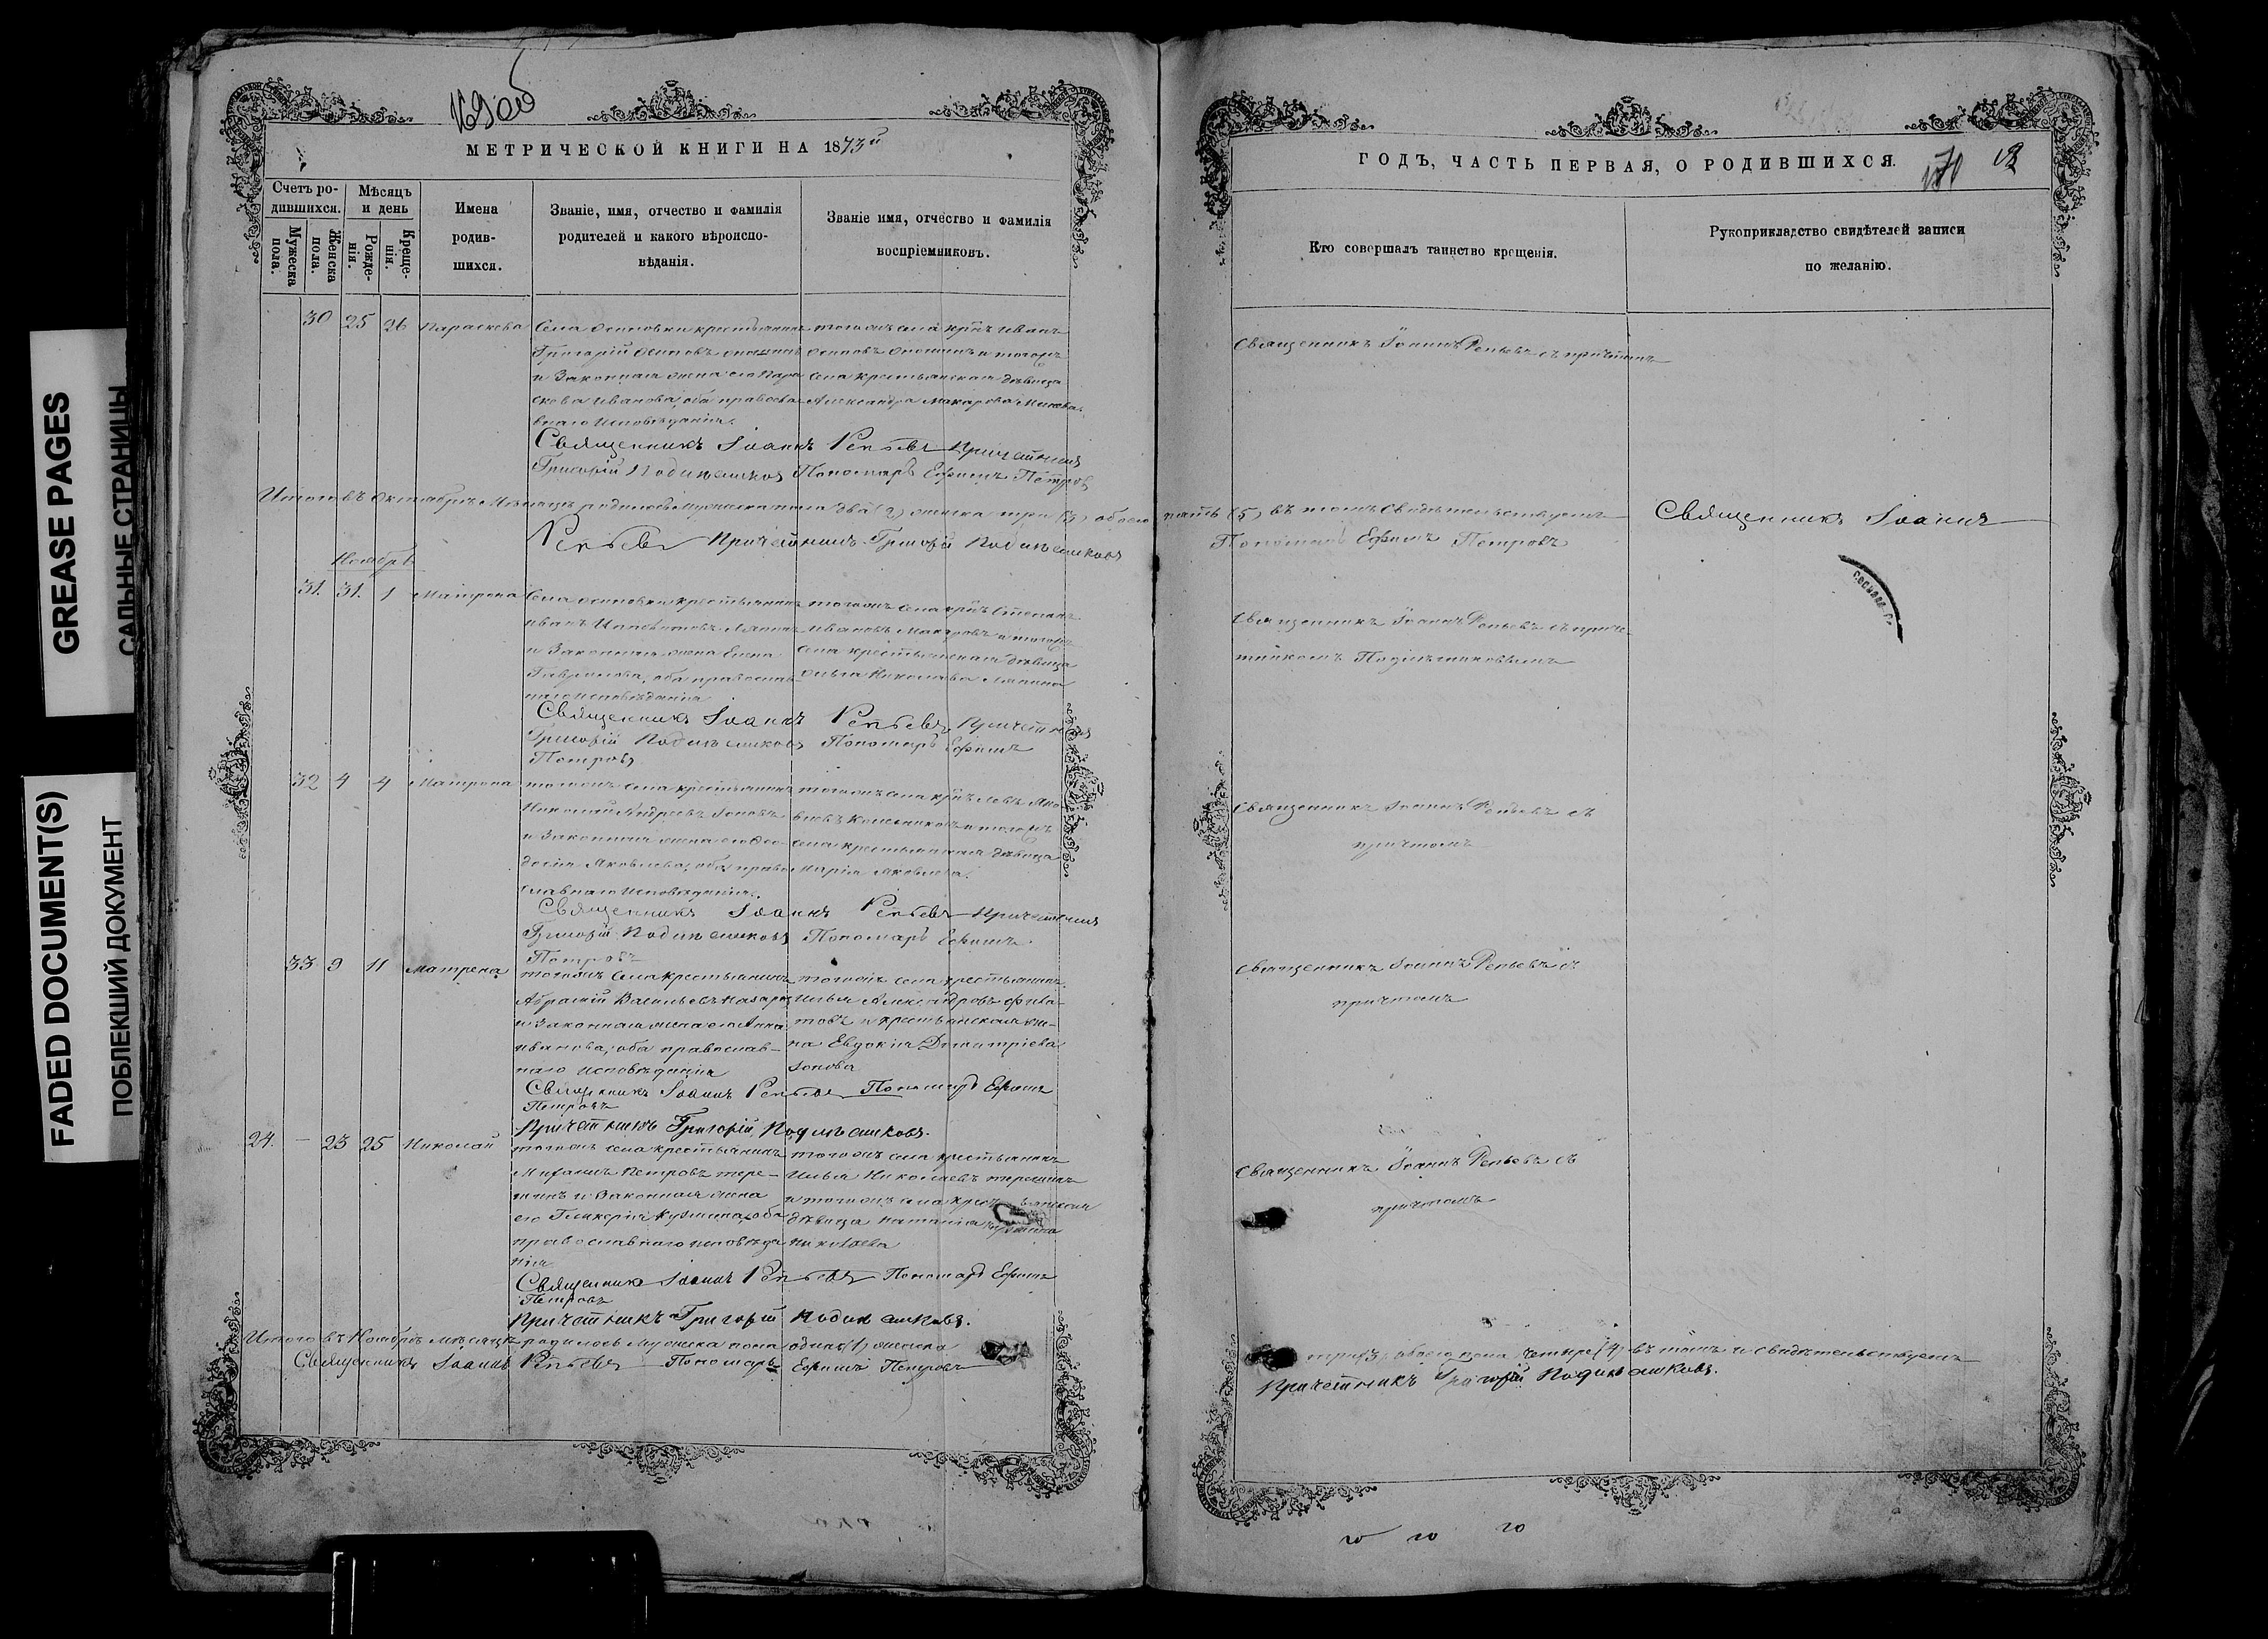 169 об
МЕТРИЧЕСКОЙ КНИГИ НА 1873й
Счетъ ро-
дившихся.
Мужеска
пола.
Женска
пола.
Мѣсяцъ
и день
Рожде-
нія.
Креще-
нія.
Имена
родив-
шихся.
Званіе, имя, отчество и фамилія
родителей и какого вѣроиспо-
вѣданія.
Званіе имя, отчество и фамилія
воспріемниковъ.
30 25 26 Параскева
Села Осиновки крестьянинъ
Григорій Осиповъ
и Законная жена его Пара
скева Иванова, оба правосла
внаго Исповѣданія.
тогожъ села кр-нъ Иванъ
Осиповъ и тогожъ
села крестьянская дѣвица
Александра Макарова
Священникъ Іоаннъ Репьевъ Причетникъ
Григорій Пономарь Ефимъ Петровъ
Итого въ Октябрѣ Мѣсяцѣ родилось Мужеска пола два (2) женска три (3) обоего
Репьевъ Причетникъ Григорій
Ноябрь
31. 31. 1 Матрона
Села Осиновки крестьянинъ
Иванъ
и Законная жена Елена
Гаврилова, оба православ
наго исповѣданія
тогожъ села кр-нъ Степанъ
Ивановъ Макаровъ и тогожъ
села крестьянская дѣвица
Ольга Николаева
Священникъ Іоаннъ Репьевъ Причетникъ
Григорій Пономарь Ефимъ
Петровъ
32 4 4 Матрона
тогожъ села крестьянинъ
Николай Андреевъ Зоновъ
и Законная жена его Ѳео
досія Яковлева, оба право
славнаго Исповѣданія.
тогожъ села кр-нъ Левъ Яко
влевъ и тогожъ
села крестьянская дѣвица
Марія Яковлева.
Священникъ Іоаннъ Репьевъ Причетникъ
Григорій Пономарь Ефимъ
Петровъ
33 9 11 Матрена
тогожъ села крестьянинъ
Васильевъ
и Законная жена его Анна
Иванова, оба православ-
наго исповѣданія
тогожъ села крестьянинъ
Илья Александровъ Фила-
товъ и крестьянская же-
на Евдокія Димитріева
Зонова
Священникъ Іоаннъ Репьевъ Пономарь Ефимъ
Петровъ
Причетникъ Григорій
24. — 23 25 Николай
тогожъ села крестьянинъ
Михаилъ Петровъ Тере-
шинъ и Законная жена
его Гликерія Кузмина, оба
православнаго исповѣда
нія
тогожъ села крестьянинъ
Илья Николаевъ Терешинъ
и тогожъ села
дѣвица Наталія
Николаева
Священникъ Іоаннъ Репьевъ Пономарь Ефимъ
Петровъ
Причетникъ Григорій
Итого въ Ноябрѣ мѣсяцѣ родилось мужеска пола одинъ (1) женска
Священникъ Іоаннъ Репьевъ Пономарь Ефимъ Петровъ
ГОДЪ, ЧАСТЬ ПЕРВАЯ, О РОДИВШИХСЯ.
170
Кто совершалъ таинство крещенія.
Рукоприкладство свидѣтелей записи
по желанію.
Священникъ Іоаннъ Репьевъ съ причтомъ
пять (5) въ томъ Свидѣтельствуемъ Священникъ Іоаннъ
Пономарь Ефимъ Петровъ
Священникъ Іоаннъ Репьевъ съ приче-
тникомъ
Священникъ Іоаннъ Репьевъ съ
причтомъ
Священникъ Іоаннъ Репьевъ съ
причтомъ
Священникъ Іоаннъ Репьевъ съ
причтомъ
три (3), обоего пола, четыре (4) въ томъ и свидѣтельствуемъ
Причетникъ Григорій
GREASE PAGES
САЛЬНЫЕ СТРАНИЦЫ
FADED DOCUMENT(S)
ПОБЛЕКШИЙ ДОКУМЕНТ